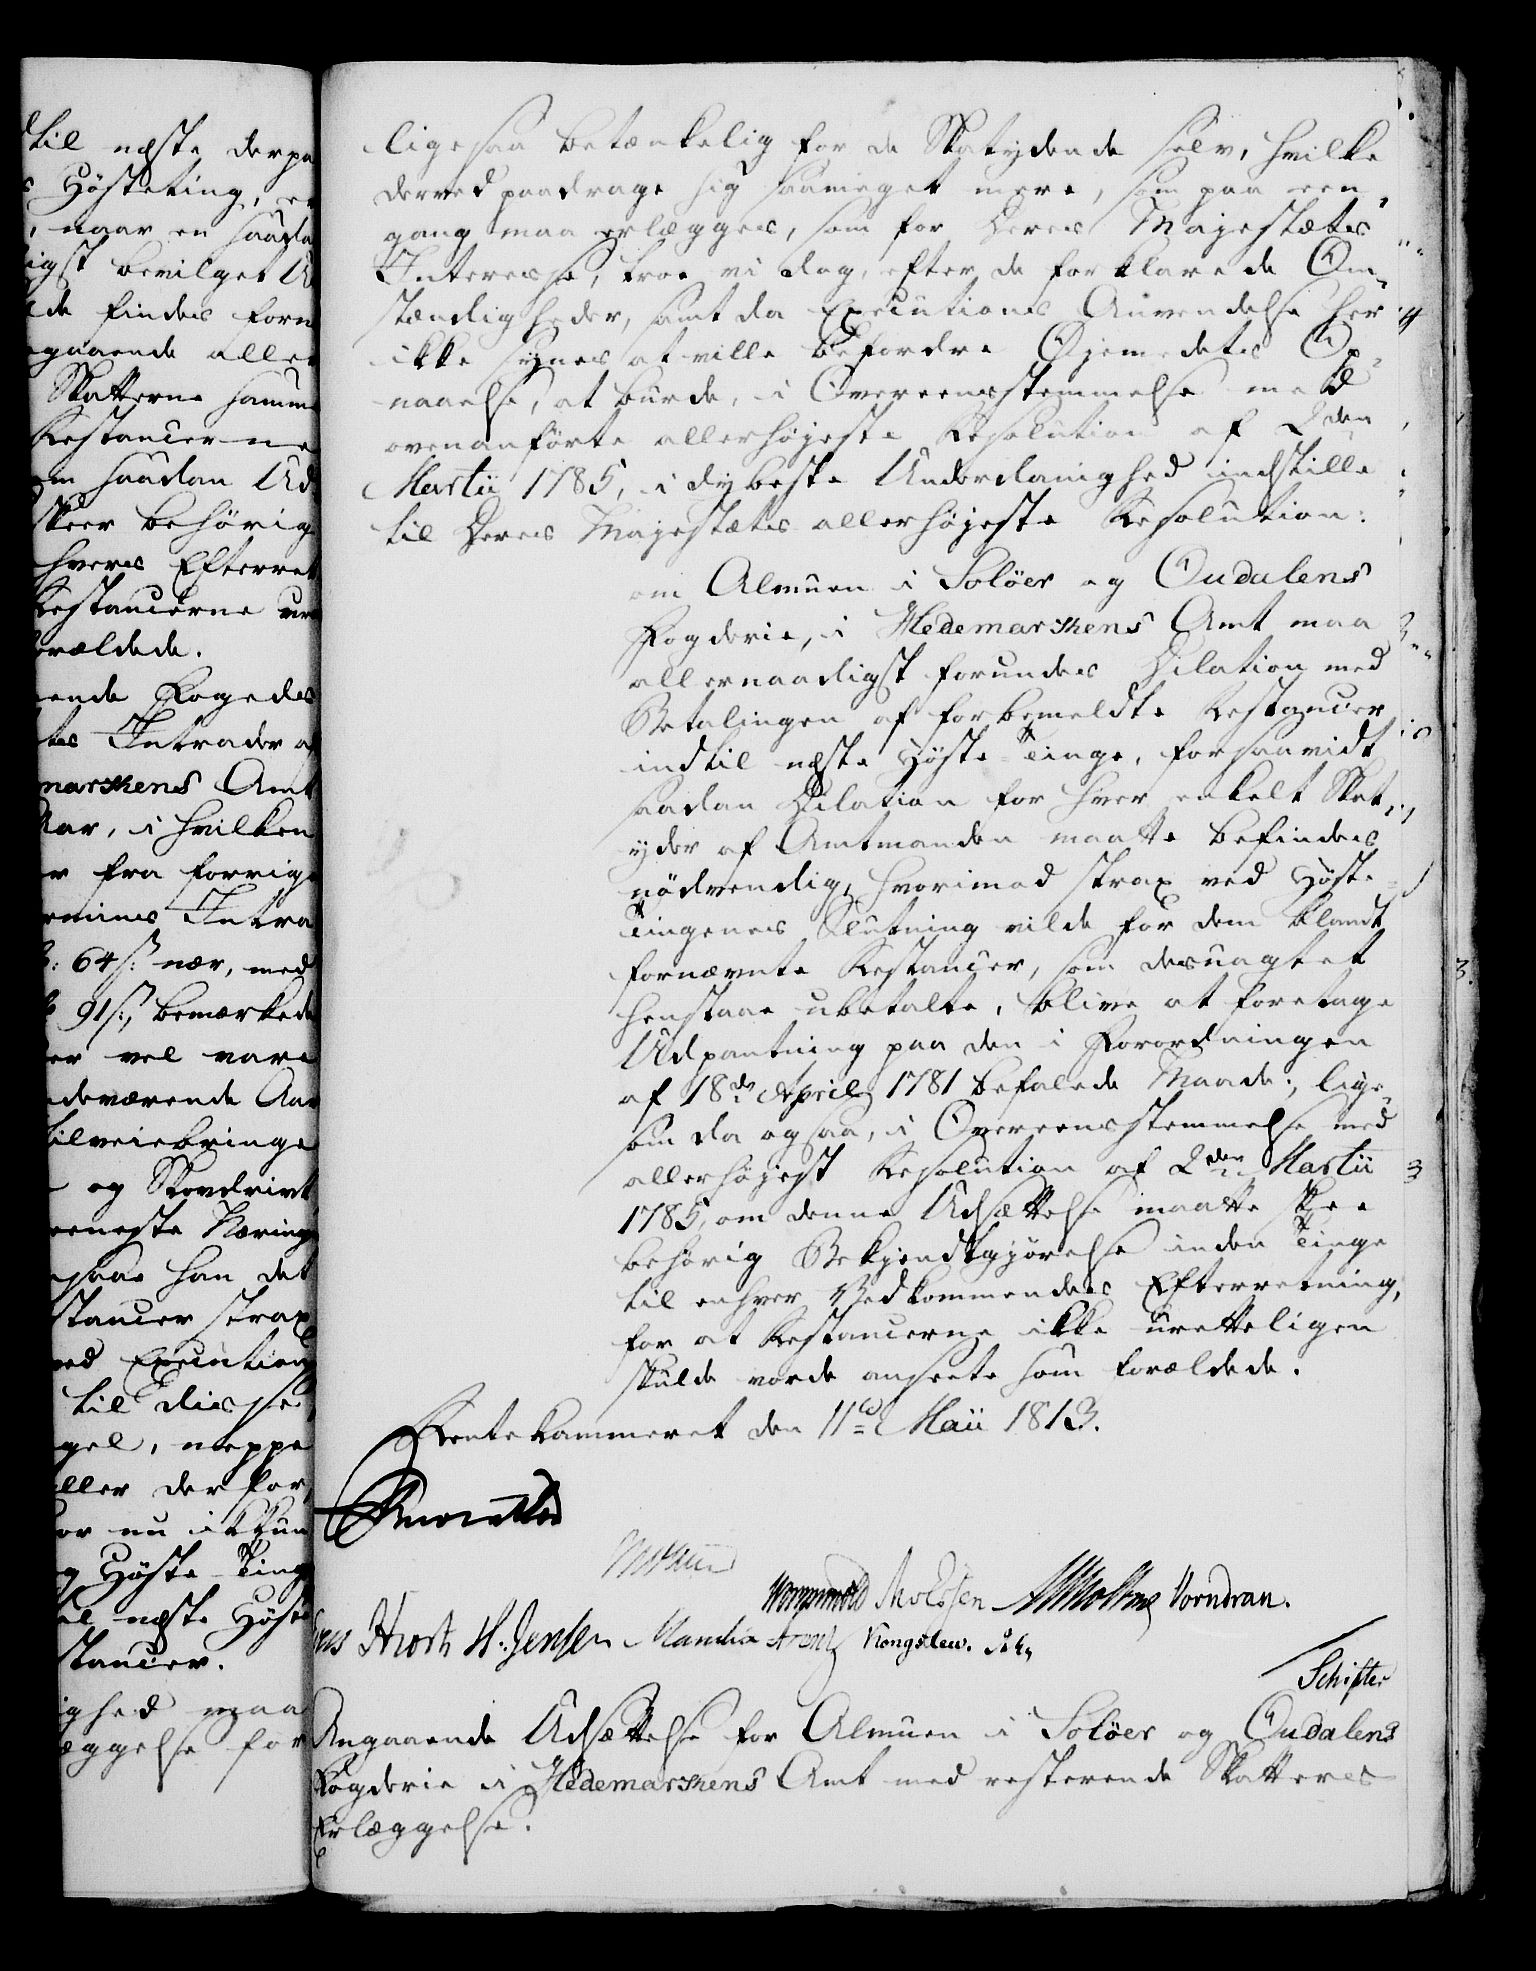 til næste derpaa
s Høsteting, er
, naar en saada
igst bevilget U
de findes forn
gaaende aller
Skatterne samme
Restancerne
en saadan Ud
skeer behørig
hvers Efterret
Restancerne ure
forældede.
ende Fogedes
tes Intrader af
marskens Amt
Aar, i hvilken
er fra forrige
ermines Intra
: 64 s: nær, med
91 s:, bemærkede
er vel vare
deværende Aar
tilveiebringe
og Skovdrivt
eneste Næring
saae han det
stancer strax
ved Execution
til disse
gel, neppe
eller derfor
for nu i Skun
og Høste-Ting
til næste Høst
stancer.
ghed maa
æggelse for
ligesaa betænkelig for de Skatydende selv, hvilke
derved paadrage sig saameget mere, som paa een
gang maa erlægges, som for Deres Majestæts
Interesse, troe vi dog, efter de forklarede Om-
stændigheder, samt da Executions Anvendelse her
ikke synes at ville befordre Øjemedets Op-
naaelse, at burde, i Overeensstemmelse med
ovenanførte allerhøjeste Resolution af 2den
Martii 1785, i dybeste Underdanighed indstille
til Deres Majestæts allerhøjeste Resolution:
om Almuen i Solöer og Oudalens
Fogderie, i Hedemarskens Amt maa
allernaadigst forundes Dilation med
Betalingen af forbemeldte Restancer
indtil næste Høste-Tinge, forsaavidt
saadan Dilation for hver enkelt Skat-
yder af Amtmanden maatte befindes
nødvendig, hvorimod strax ved Høste-
Tingenes Slutning vilde for dem blandt
fornævnte Restancer, som desuagtet
henstaae ubetalte, blive at foretage
Udpantning paa den i Forordningen
af 18de April 1781 befalede Maade; lige-
som da ogsaa, i Overeensstemmelse med
allerhøjest Resolution af 2den Martii
1785, om denne Udsættelse maatte skee
behørig Bekjendtgjørelse inden Tinge
til enhver Vedkommendes Efterretning,
for at Restancerne ikke uretteligen
skulde vorde anseete som forældede.
Rentekammeret den 11te Maii 1813.
Wormskiold Vorndran.
Hroth H. Jensen Arentz Kongslew.
Schifter
Angaaende Udsættelse for Almuen i Solöer og Oudalens
Fogderie i Hedemarskens Amt med resterende Skatters
Erlæggelse.